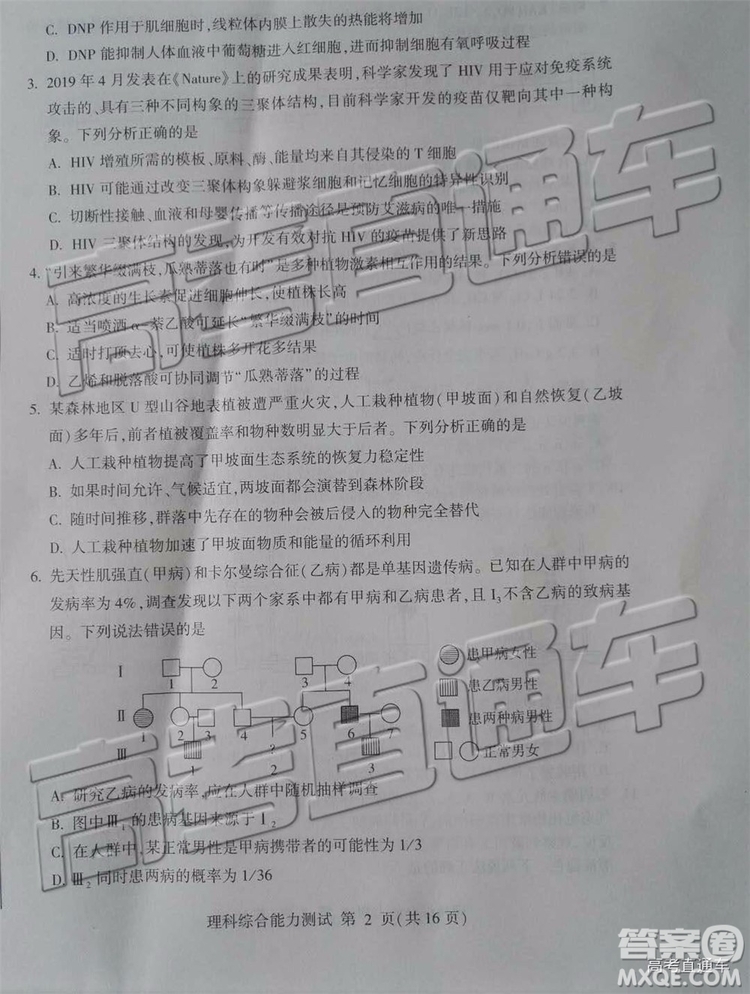 C. DNP 作用于肌细胞时,线粒体内膜上散失的热能将增加
D. DNP 能抑制人体血液中葡萄糖进入红细胞,进而抑制细胞有氧呼吸过程
3. 2019 年 4 月发表在《Nature》上的研究成果表明,科学家发现了 HIV 用于应对免疫系统
攻击的、具有三种不同构象的三聚体结构,目前科学家开发的疫苗仅靶向其中一种构
象。下列分析正确的是
A. HIV 增殖所需的模板、原料、酶、能量均来自其侵染的 T 细胞
B. HIV 可能通过改变三聚体构象躲避浆细胞和记忆细胞的特异性识别
C. 切断性接触、血液和母婴传播等传播途径是预防艾滋病的唯一措施
D. HIV 三聚体结构的发现,为开发有效对抗 HIV 的疫苗提供了新思路
4. “引来繁华缀满枝,瓜熟蒂落也有时”是多种植物激素相互作用的结果。下列分析错误的是
A. 高浓度的生长素促进细胞伸长,使植株长高
B. 适当喷洒 α-萘乙酸可延长“繁华缀满枝”的时间
C. 适时打顶去心,可使植株多开花多结果
D. 乙烯和脱落酸可协同调节“瓜熟蒂落”的过程
5. 某森林地区 U 型山谷地表植被遭严重火灾,人工栽种植物(甲坡面)和自然恢复(乙坡
面)多年后,前者植被覆盖率和物种数明显大于后者。下列分析正确的是
A. 人工栽种植物提高了甲坡面生态系统的恢复力稳定性
B. 如果时间允许、气候适宜,两坡面都会演替到森林阶段
C. 随时间推移,群落中先存在的物种会被后侵入的物种完全替代
D. 人工栽种植物加速了甲坡面物质和能量的循环利用
6. 先天性肌强直(甲病)和卡尔曼综合征(乙病)都是单基因遗传病。已知在人群中甲病的
发病率为 4%,调查发现以下两个家系中都有甲病和乙病患者,且 I₃不含乙病的致病基
因。下列说法错误的是
Ⅰ 1 2 3 4 患甲病女性
患乙病男性
Ⅱ 1 2 3 4 5 6 7 患两种病男性
Ⅲ 1 ? 2 3 正常男女
A. 研究乙病的发病率,应在人群中随机抽样调查
B. 图中Ⅲ₁的患病基因来源于Ⅰ₂
C. 在人群中,某正常男性是甲病携带者的可能性为 1/3
D. Ⅲ₂同时患两病的概率为 1/36
理科综合能力测试 第 2 页(共16页)
高考直通车
高考直通车
答案圈
高考直通车
MXQE.COM